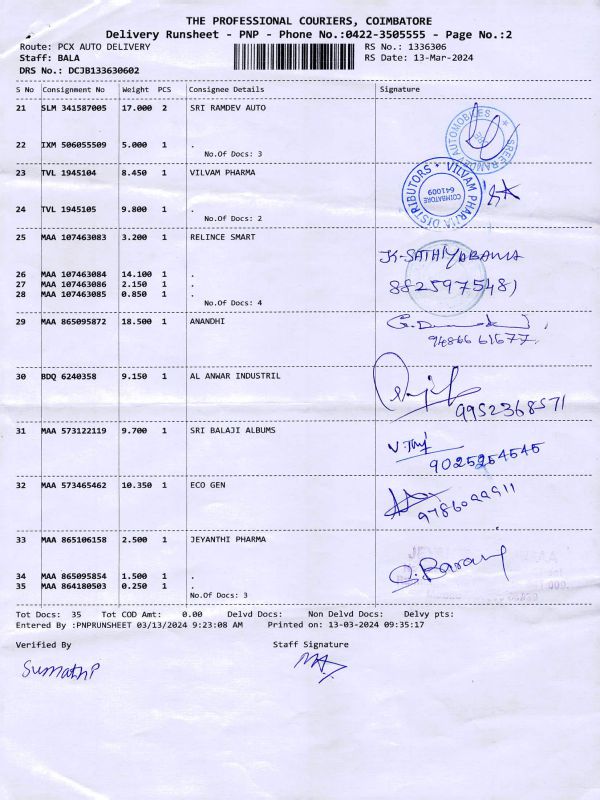 THE PROFESSIONAL COURIERS, COIMBATORE
Delivery Runsheet - PNP - Phone No.:0422-3505555 - Page No.:2
Route: PCX AUTO DELIVERY RS No.: 1336306
Staff: BALA RS Date: 13-Mar-2024
DRS No.: DCJB133630602
S No Consignment No Weight PCS Consignee Details Signature
21 SLM 341587005 17.000 2 SRI RAMDEV AUTO
22 IXM 506055509 5.000 1 .
No.Of Docs: 3
23 TVL 1945104 8.450 1 VILVAM PHARMA
VILVAM PHARMA DISTRIBUTORS
COIMBATORE
641009
24 TVL 1945105 9.800 1 .
No.Of Docs: 2
25 MAA 107463083 3.200 1 RELINCE SMART
JK-SATHIYABAMA
26 MAA 107463084 14.100 1 .
27 MAA 107463086 2.150 1 .
28 MAA 107463085 0.850 1 .
8825975481
No.Of Docs: 4
29 MAA 865095872 18.500 1 ANANDHI
9486661677
30 BDQ 6240358 9.150 1 AL ANWAR INDUSTRIL
9952368571
31 MAA 573122119 9.700 1 SRI BALAJI ALBUMS
9025254545
32 MAA 573465462 10.350 1 ECO GEN
33 MAA 865106158 2.500 1 JEYANTHI PHARMA
34 MAA 865095854 1.500 1 .
35 MAA 864180503 0.250 1 .
No.Of Docs: 3
Tot Docs: 35 Tot COD Amt: 0.00 Delvd Docs: Non Delvd Docs: Delvy pts:
Entered By :PNPRUNSHEET 03/13/2024 9:23:08 AM Printed on: 13-03-2024 09:35:17
Verified By Staff Signature